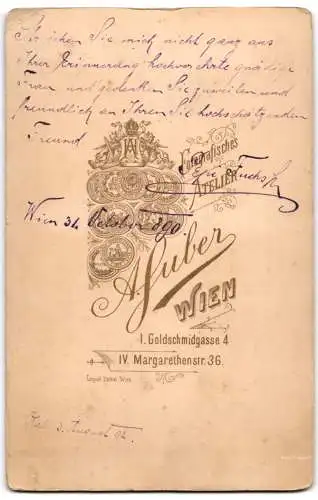 Streichen Sie mich nicht ganz aus
Ihrer Erinnerung hochverehrte gnädige
Frau und gedenken Sie zuweilen und
freundlich an Ihren Sie hochschätzenden
Freund
Fotografisches
Atelier
Fuchs
Wien 31. October 890
A. Huber
WIEN
I. Goldschmidgasse 4
IV. Margarethenstr. 36.
Wien
3. August 92.